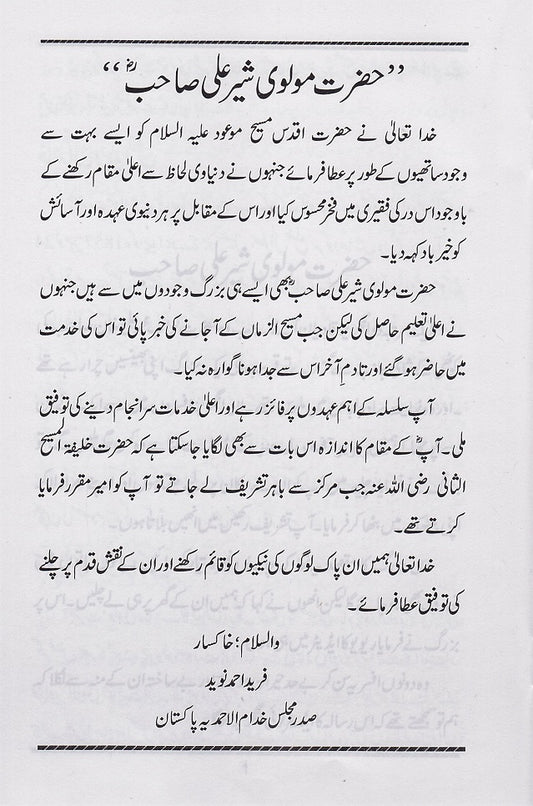 ”حضرت مولوی شیر علی صاحبؓ“
خدا تعالیٰ نے حضرت اقدس مسیح موعود علیہ السلام کو ایسے بہت سے
وجود ساتھیوں کے طور پر عطا فرمائے جنہوں نے دنیاوی لحاظ سے اعلیٰ مقام رکھنے کے
باوجود اس در کی فقیری میں فخر محسوس کیا اور اس کے مقابل پر ہر دنیوی عہدہ اور آسائش
کو خیر باد کہہ دیا۔
حضرت مولوی شیر علی صاحبؓ بھی ایسے ہی بزرگ وجودوں میں سے ہیں جنہوں
نے اعلیٰ تعلیم حاصل کی لیکن جب مسیح الزماں کے آ جانے کی خبر پائی تو اس کی خدمت
میں حاضر ہو گئے اور تا دمِ آخر اس سے جدا ہونا گوارہ نہ کیا۔
آپ سلسلہ کے اہم عہدوں پر فائز رہے اور اعلیٰ خدمات سر انجام دینے کی توفیق
ملی۔ آپؓ کے مقام کا اندازہ اس بات سے بھی لگایا جا سکتا ہے کہ حضرت خلیفۃ المسیح
الثانی رضی اللہ عنہ جب مرکز سے باہر تشریف لے جاتے تو آپ کو امیر مقرر فرمایا
کرتے تھے۔
خدا تعالیٰ ہمیں ان پاک لوگوں کی نیکیوں کو قائم رکھنے اور ان کے نقش قدم پر چلنے
کی توفیق عطا فرمائے۔
والسلام؛ خاکسار
فرید احمد نوید
صدر مجلس خدام الاحمدیہ پاکستان